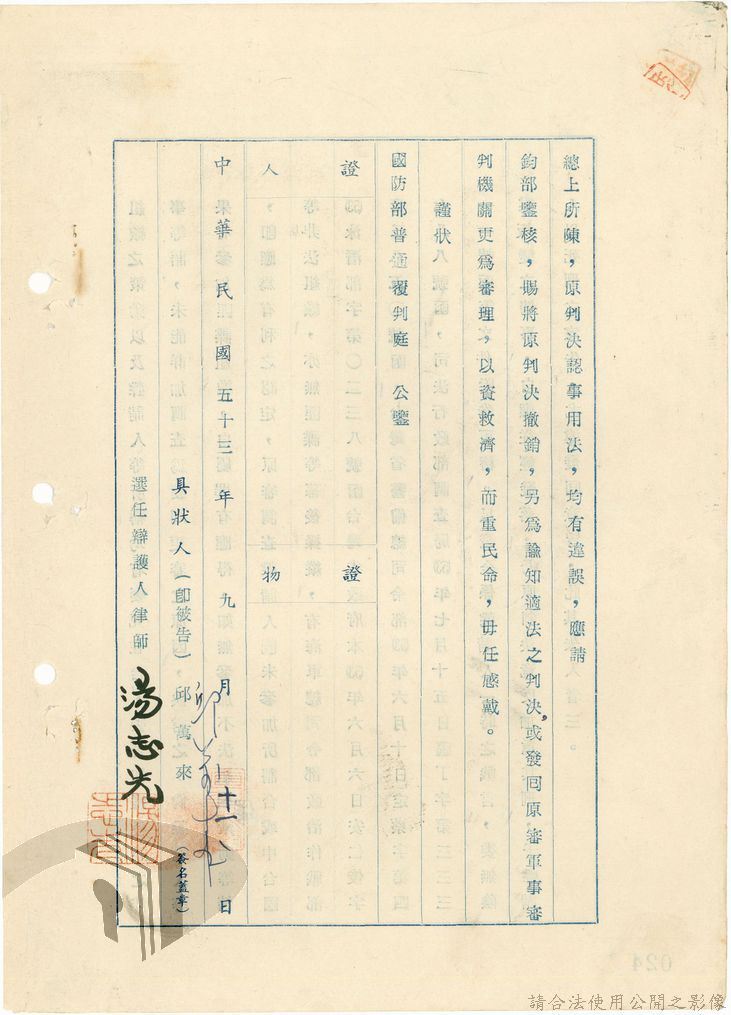 總上所陳，原判決認事用法，均有違誤，應請
鈞部鑒核，賜將原判決撤銷，另為諭知適法之判決，或發囘原審軍事審
判機關更為審理，以資救濟，而重民命，毋任感戴。
謹狀
國防部普通覆判庭　公鑒
證　物
證　人
中華民國五十三年九月十一日
具狀人（卽被告）邱萬來（簽名蓋章）
選任辯護人律師　湯志先
請合法使用公開之影像